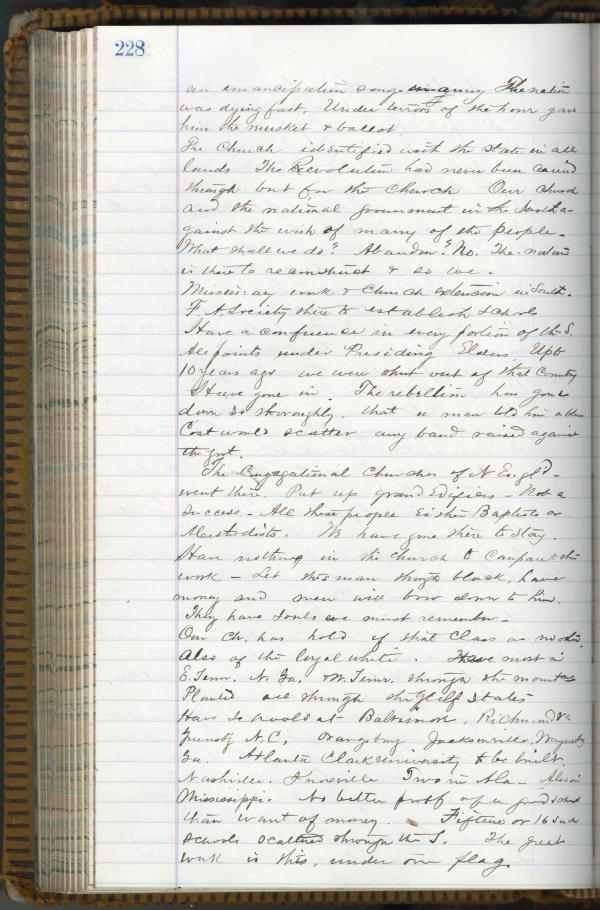 228
an emancipation song in army The nation
was dying fast, Under terrors of the hour gave
him the musket & ballot.
The Church identified with the state in all
lands The Revolution had never been carried
through but for the Church Our church
and the national government in the South a-
gainst the wish of many of the people -
What shall we do? Abandon? No. The nation
is there to reconstruct & so we -
Missionary work & Church extension in South.
F. A Society there to establish schools
Have a conference in every portion of the S.
All points under Presiding Elders. Up to
10 years ago we were shut out of that Country
Have gone in. The rebellion has gone
down so thoroughly, that a man told him a blue
Coat would scatter any band raised against
the govt.
The Congregational Churches of N Engld -
went there. Put up grand Edifices - Not a
success - All these people Either Baptists or
Methodists. We have gone there to stay.
Have nothing in the church to compare to this
work - Let this man though black, have
money and men will bow down to him.
They have souls we must remember -
Our Ch. has hold of that Class as no other
Also of the loyal white. Have most in
E. Tenn. N. Ga. & W. Tenn. through the mountains
Planted all through the Gulf States
Have schools at Baltimore, Richmond Va
N.C, Orangeburg Jacksonville, Waynesboro
Ga. Atlanta Clark University to be built.
Nashville. Knoxville Two in Ala - Also in
Mississippi. No better proof of a good school
than want of money. Fifteen or 16 such
schools scattered through the S. The great
work is this, under one flag